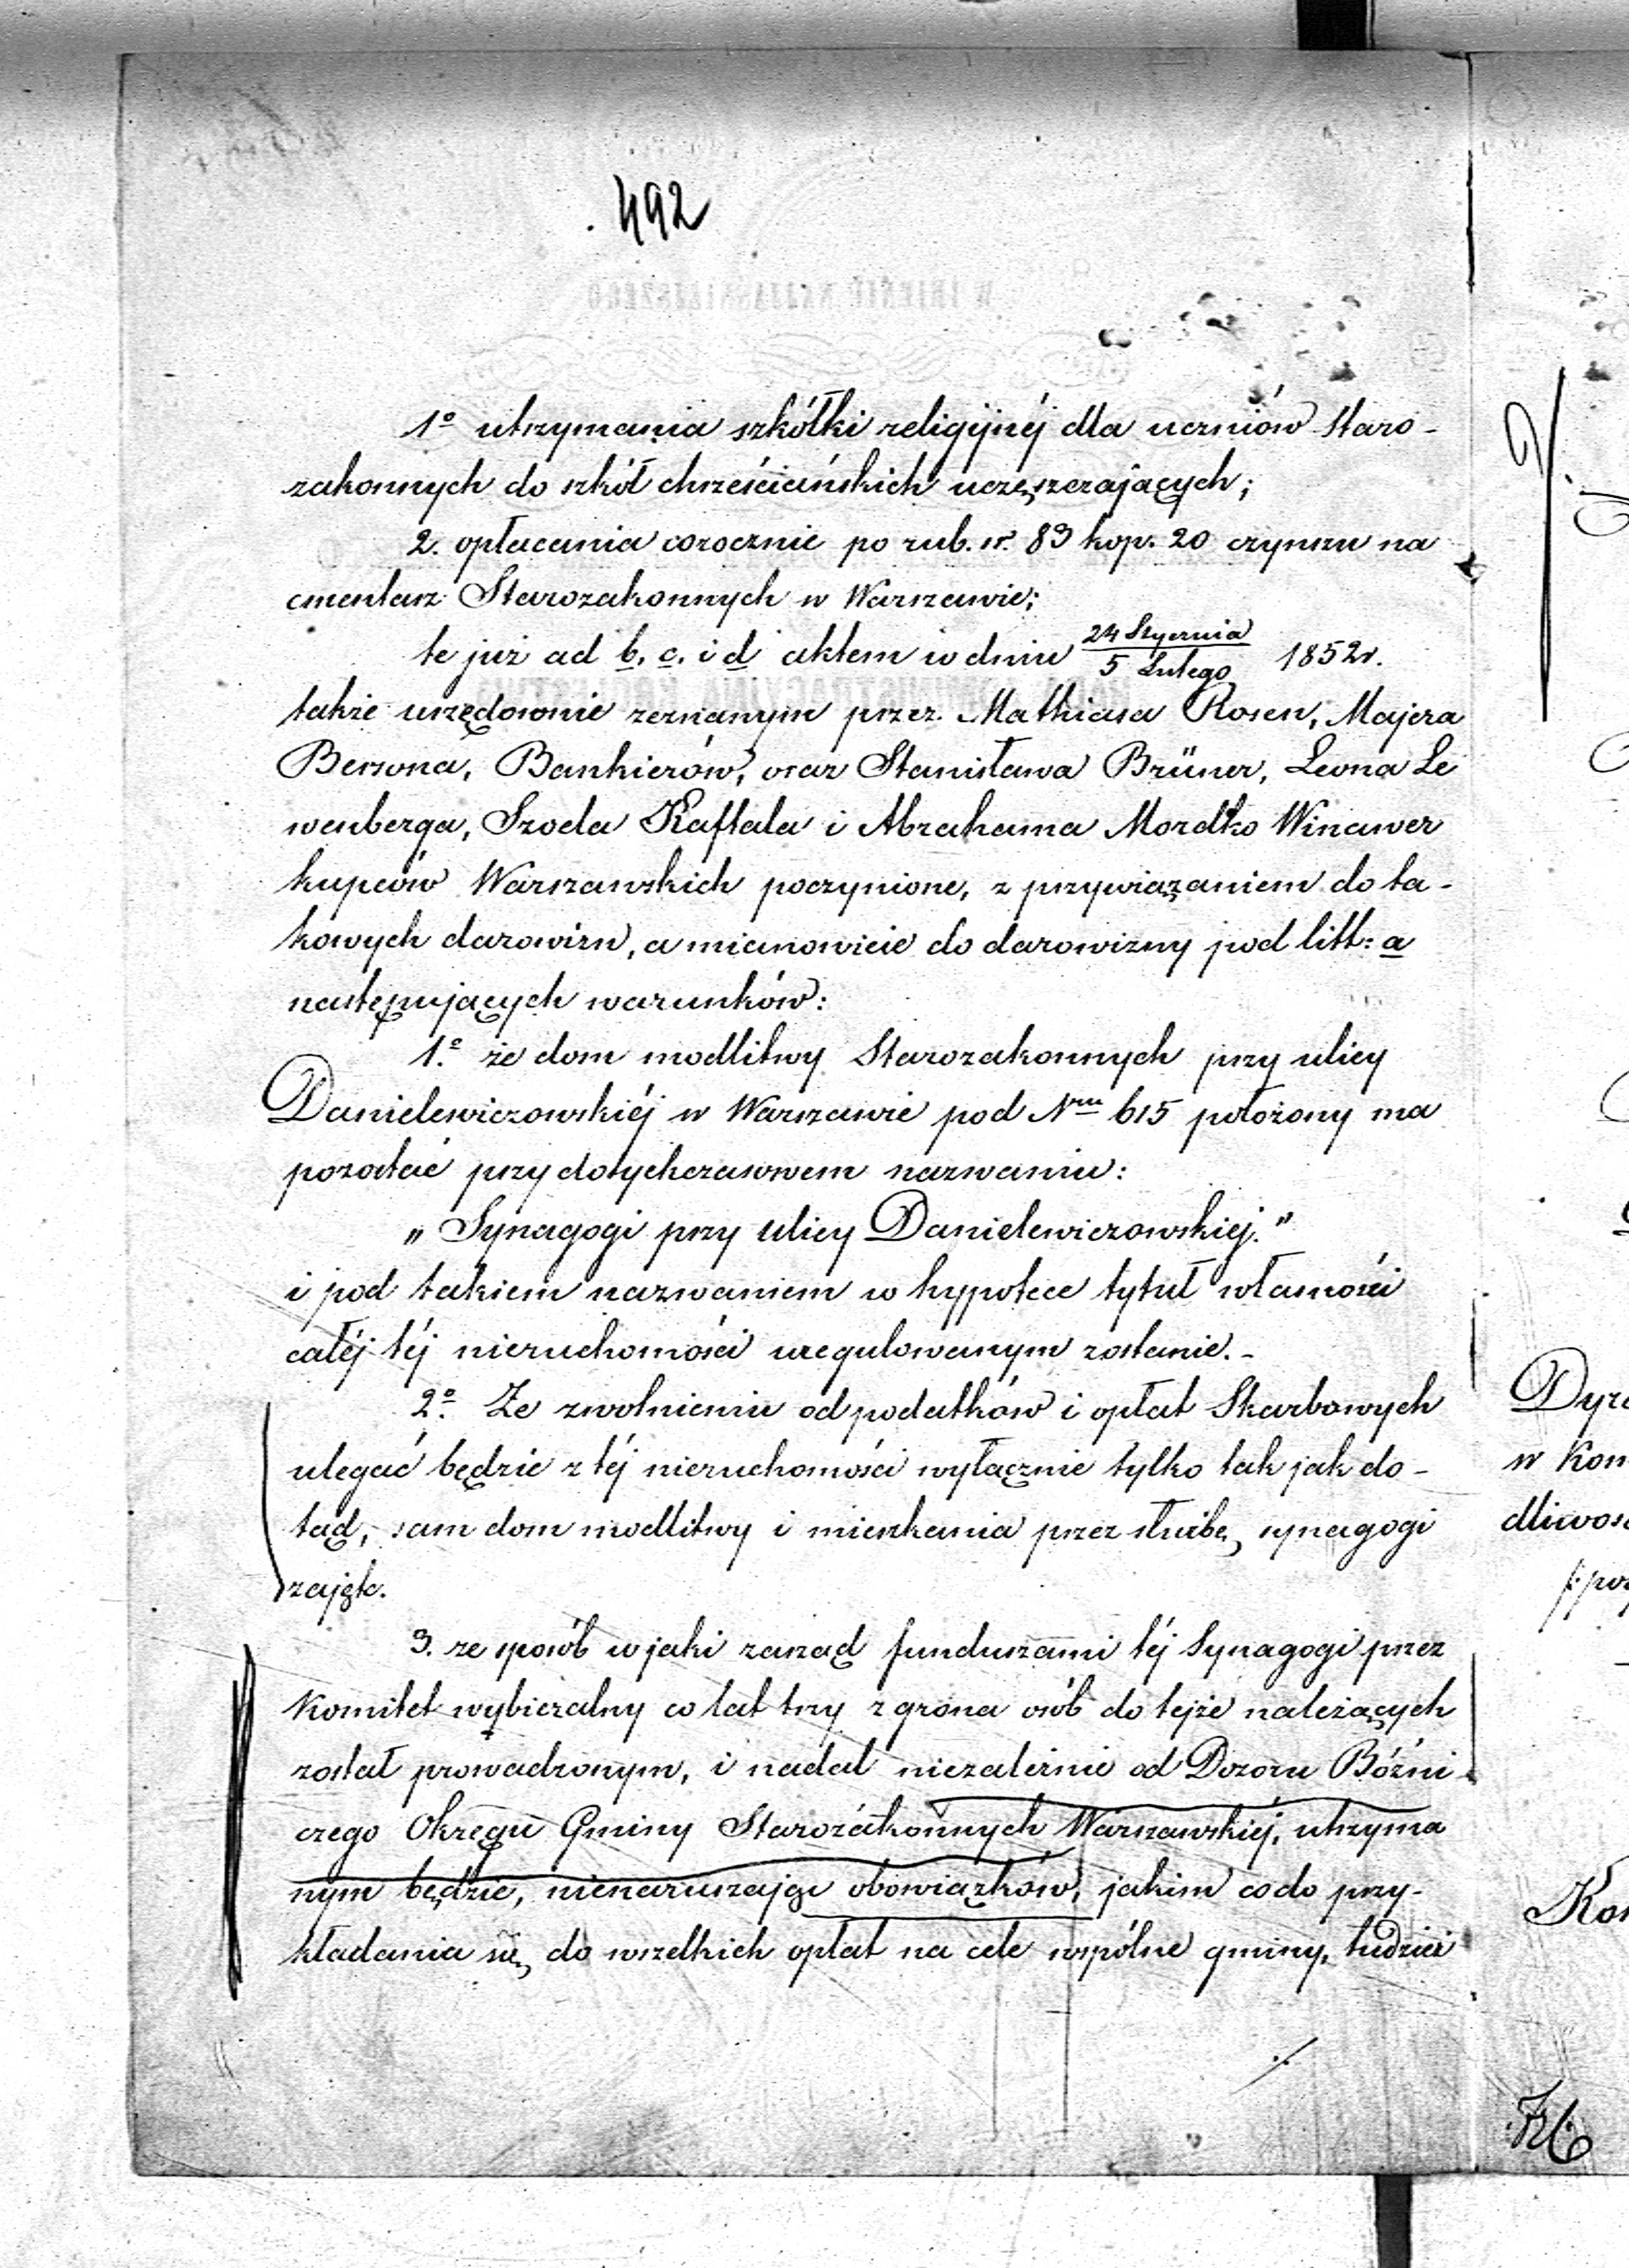 492
1º utrzymania szkółki religijnéj dla uczniów Staro-
zakonnych do szkół chrześciańskich uczęszczających;
2. opłacania corocznie po rub. sr. 83 kop. 20 czynszu na
cmentarz Starozakonnych w Warszawie;
te już ad b. c. i d aktem w dniu 24 Stycznia / 5 Lutego 1852 r.
także urzędownie zeznanym przez Mathiasa Rosen, Majera
Bersona, Bankierów, oraz Stanisława Brüner, Leona Le
wenberga, Szoela Kaftala i Abrahama Mordko Winawer
kupców Warszawskich poczynione, z przywiązaniem do ta-
kowych darowizn, a mianowicie do darowizny pod litt: a
następujących warunków:
1.º że dom modlitwy Starozakonnych przy ulicy
Danielewiczowskiéj w Warszawie pod Nrm 615 położony ma
pozostać przy dotychczasowem nazwaniu:
„Synagogi przy ulicy Danielewiczowskiej."
i pod takiem nazwaniem w hypotece tytuł własności
całéj téj nieruchomości uregulowanym zostanie.-
2º. Że zwolnieniu od podatków i opłat Skarbowych
ulegać będzie z téj nieruchomości wyłącznie tylko tak jak do-
tąd, sam dom modlitwy i mieszkania przez służbę synagogi
zajęte.
3. że sposób w jaki zarząd funduszami téj Synagogi przez
Komitet wybieralny co lat trzy z grona osób do tejże należących
został prowadzonym, i nadal niezależnie od Dozoru Bóźni
czego Okręgu Gminy Starozakonnych Warszawskiéj, utrzyma
nym będzie, nienaruszając obowiązków, jakim co do przy-
kładania się do wszelkich opłat na cele wspólne gminy, tudzież
Dyre
w Kom
dliwoś
Kom